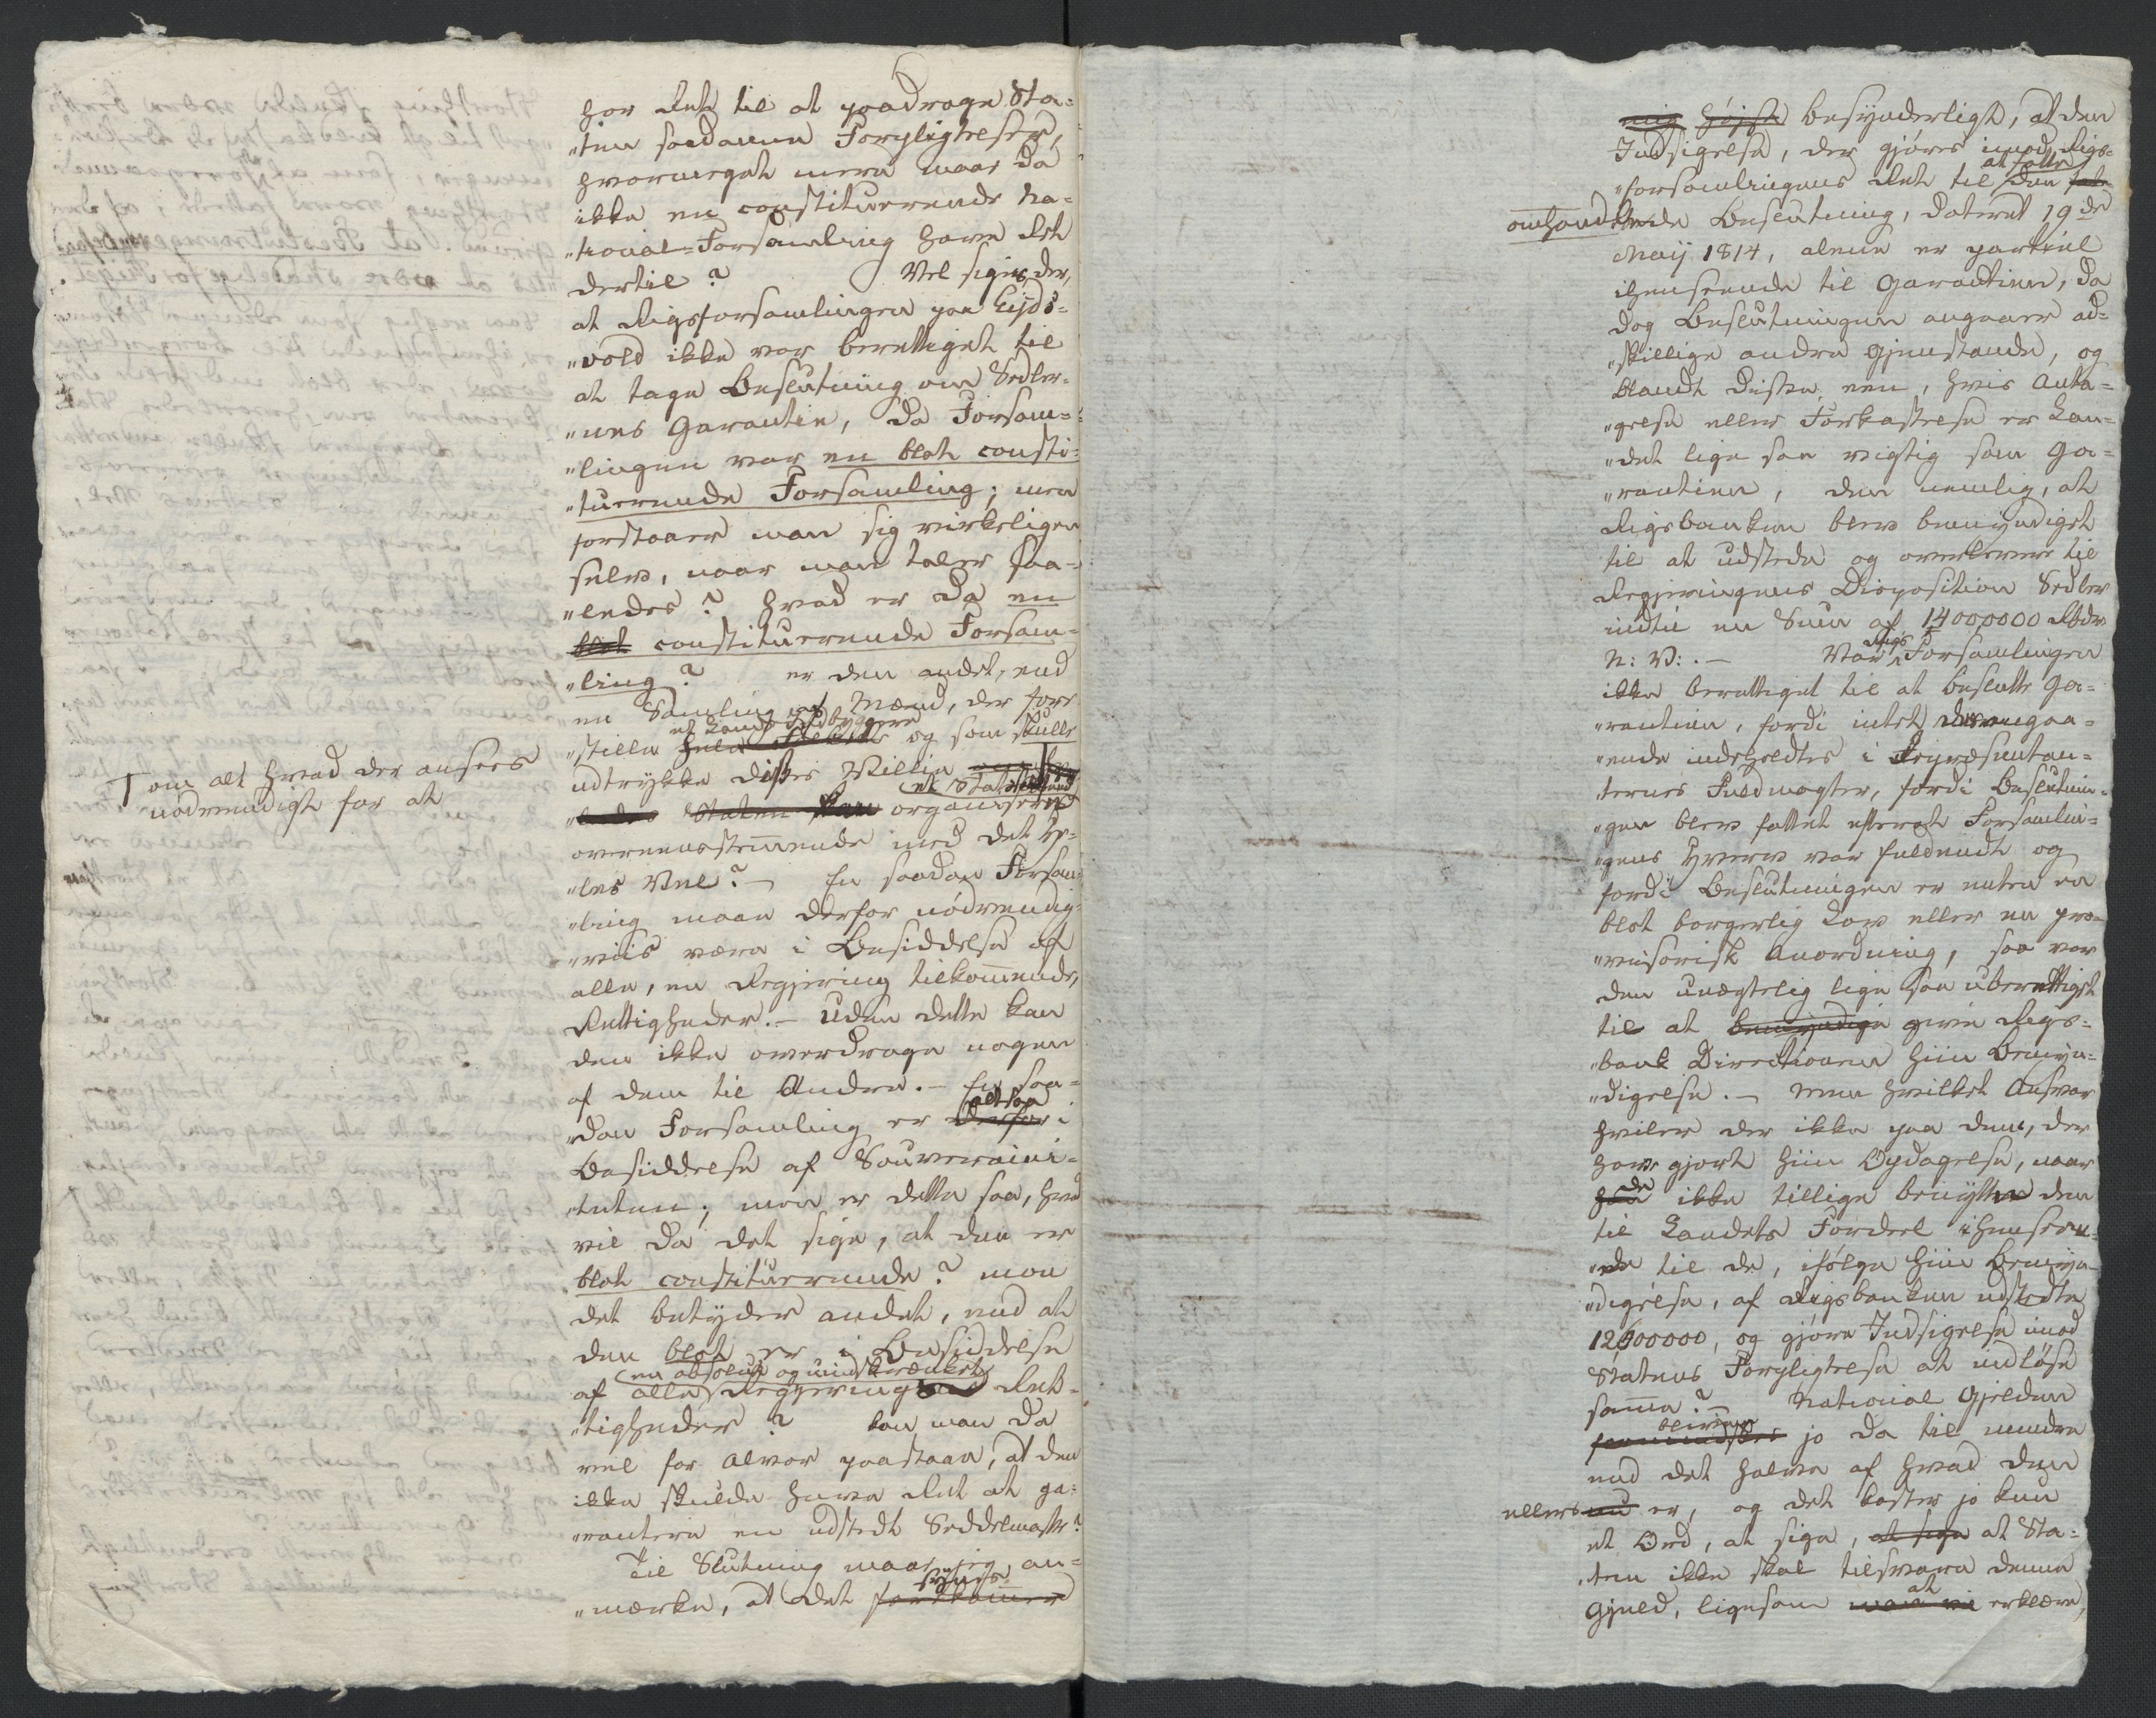 har Ret til at paadrage Sta-
"ten saadanne Forpligtelser,
hvormeget mere maae da
ikke en constituerende Na-
"tional-Forsamling have Ret
dertil? Vel siges der,
at Rigsforsamlingen paa Eids-
"vold ikke var berettiget til
at tage Beslutning om Sedler-
"nes Garantie, da Forsam-
"lingen var en blot consti-
"tuerende Forsamling; men
forstaaer man sig virkeligen
selv, naar man taler saa-
"ledes? Hvad er da en
blot constituerende Forsam-
"ling? er den andet, end
en Samling af Mænd, der fore-
et Lands Indbyggere
"stille hele og som skulle
udtrykke disses Villie
T om alt hvad der ansees
nødvendigt for at
et Statsforbund
Staten kan organiseres
overeensstemmende med det He-
"les Vel? – En saadan Forsam-
"ling maae derfor nødvendig-
"viis være i Besiddelse af
alle, en Regjering tilkommende,
Rettigheder. – Uden dette kan
den ikke overdrage nogen
af dem til Andre. – En saa-
altsaa
"dan Forsamling er derfor i
Besiddelse af Souveraini-
"teten; men er dette saa, hvad
vil da det sige, at den er
blot constituerende? mon
det betyder andet, end at
den blot er i Besiddelse
en absolut og uindskrænket
af alle Regjerings Ret-
"tigheder? kan man da
vel for Alvor paastaae, at den
ikke skulde have Ret at ga-
"rantere en udstedt Seddelmasse?
Til Slutning maae jeg an-
synes
"mærke, at det forekommer
mig højst besynderligt, at den
Indsigelse, der gjøres imod Rigs-
at fatte
"forsamlingens Ret til den
omhandlende Beslutning, dateret 19de
Maij 1814, alene er partiel
ihenseende til Garantien, da
dog Beslutningen angaaer ad-
"skillige andre Gjenstande, og
blandt disse een, hvis Anta-
"gelse eller Forkastelse er Lan-
"det lige saa vigtig som Ga-
"rantien, den nemlig, at
Rigsbanken blev bemyndiget
til at udstede og overlevere til
Regjeringens Disposition Sedler
indtil en Sum af 14000000 Rbdr
Rigs
N: V:. – Var Forsamlingen
ikke berettiget til at beslutte Ga-
"rantien, fordi intet desangaa-
"ende indeholdtes i Repræsentan-
"ternes Fuldmagter, fordi Beslutnin-
"gen blev fattet efterat Forsamlin-
"gens Hverv var fuldendt og
fordi Beslutningen er enten en
blot borgerlig Lov eller en pro-
"visorisk Anordning, saa var
den unægtelig lige saa uberettiget
til at bemyndige give Rigs-
"bank Directionen hiin Bemyn-
"digelse. – Men hvilket Ansvar
hviler der ikke paa dem, der
have gjort hiin Opdagelse, naar
de
han ikke tillige benytter den
til Landets Fordeel ihenseen-
"de til de, ifølge hiin Bemyn-
"digelse, af Rigsbanken udstedte
12600000, og gjøre Indsigelse imod
Statens Forpligtelse at indløse
samme? – National Gjelden
bliver
formindskes jo da til mindre
end det halve af hvad den
ellers nu er, og det koster jo kun
et Ord, at sige, at sige at Sta-
"ten ikke skal tilsvare denne
at
Gjeld, ligesom erklære,